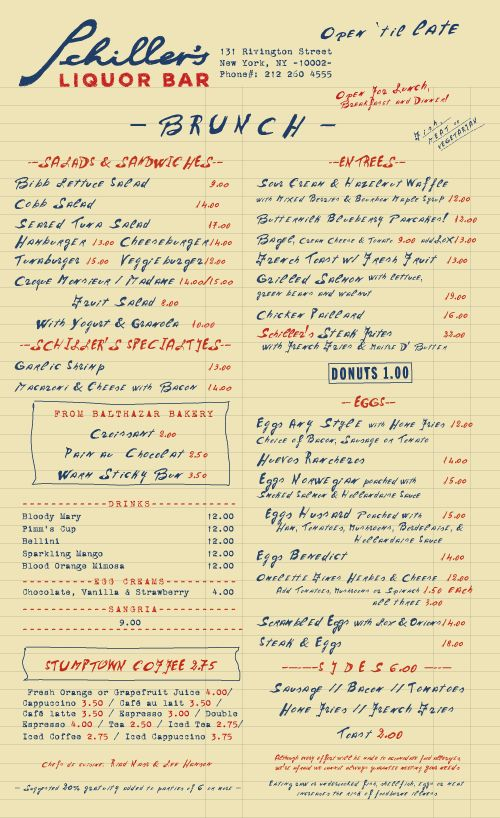 Open 'til LATE
Schiller's
LIQUOR BAR
131 Rivington Street
New York, NY -10002-
Phone#: 212 260 4555
Open For Lunch,
Breakfast and Dinner!
- BRUNCH -
Fish
MEAT or
VEGETARIAN
--SALADS & SANDWICHES--
Bibb Lettuce Salad 9.00
Cobb Salad 14.00
Seared Tuna Salad 17.00
Hamburger 13.00 Cheeseburger 14.00
Tunaburger 15.00 Veggieburger 12.00
Croque Monsieur / Madame 14.00/15.00
Fruit Salad 8.00
With Yogurt & Granola 10.00
--SCHILLER'S SPECIALTIES--
Garlic Shrimp 13.00
Macaroni & Cheese with Bacon 14.00
FROM BALTHAZAR BAKERY
Croissant 2.00
Pain au Chocolat 2.50
Warm Sticky Bun 3.50
DRINKS
Bloody Mary 12.00
Pimm's Cup 12.00
Bellini 12.00
Sparkling Mango 12.00
Blood Orange Mimosa 12.00
EGG CREAMS
Chocolate, Vanilla & Strawberry 4.00
SANGRIA
9.00
STUMPTOWN COFFEE 2.75
Fresh Orange or Grapefruit Juice 4.00/
Cappuccino 3.50 / Café au lait 3.50 /
Café latte 3.50 / Espresso 3.00 / Double
Espresso 4.00 / Tea 2.50 / Iced Tea 2.75/
Iced Coffee 2.75 / Iced Cappuccino 3.75
Chefs de cuisine: Riad Nasr & Lee Hanson
- Suggested 20% gratuity added to parties of 6 or more -
--ENTREES--
Sour Cream & Hazelnut Waffle
with Mixed Berries & Bourbon Maple Syrup 12.00
Buttermilk Blueberry Pancakes! 12.00
Bagel, Cream Cheese & Tomato 9.00 add LOX 13.00
French Toast w/ Fresh Fruit 13.00
Grilled Salmon with lettuce,
green beans and walnut 19.00
Chicken Paillard 16.00
Schiller's Steak Frites 22.00
with French Fries & Maitre D' Butter
DONUTS 1.00
--EGGS--
Eggs Any Style with Home Fries 12.00
Choice of Bacon, Sausage or Tomato
Huevos Rancheros 14.00
Eggs Norwegian poached with 15.00
Smoked Salmon & Hollandaise Sauce
Eggs Hussard Poached with 15.00
Ham, Tomatoes, Mushrooms, Bordelaise, &
Hollandaise Sauce
Eggs Benedict 14.00
Omelette Fines Herbes & Cheese 12.00
Add Tomatoes, Mushrooms or Spinach 1.50 EACH
all three 3.00
Scrambled Eggs with Lox & Onions 14.00
Steak & Eggs 18.00
SIDES 6.00
Sausage // Bacon // Tomatoes
Home Fries // French Fries
Toast 2.00
Although every effort will be made to accommodate food allergies,
we're afraid we cannot always guarantee meeting your needs
Eating raw or undercooked fish, shellfish, eggs or meat
increases the risk of foodborne illness